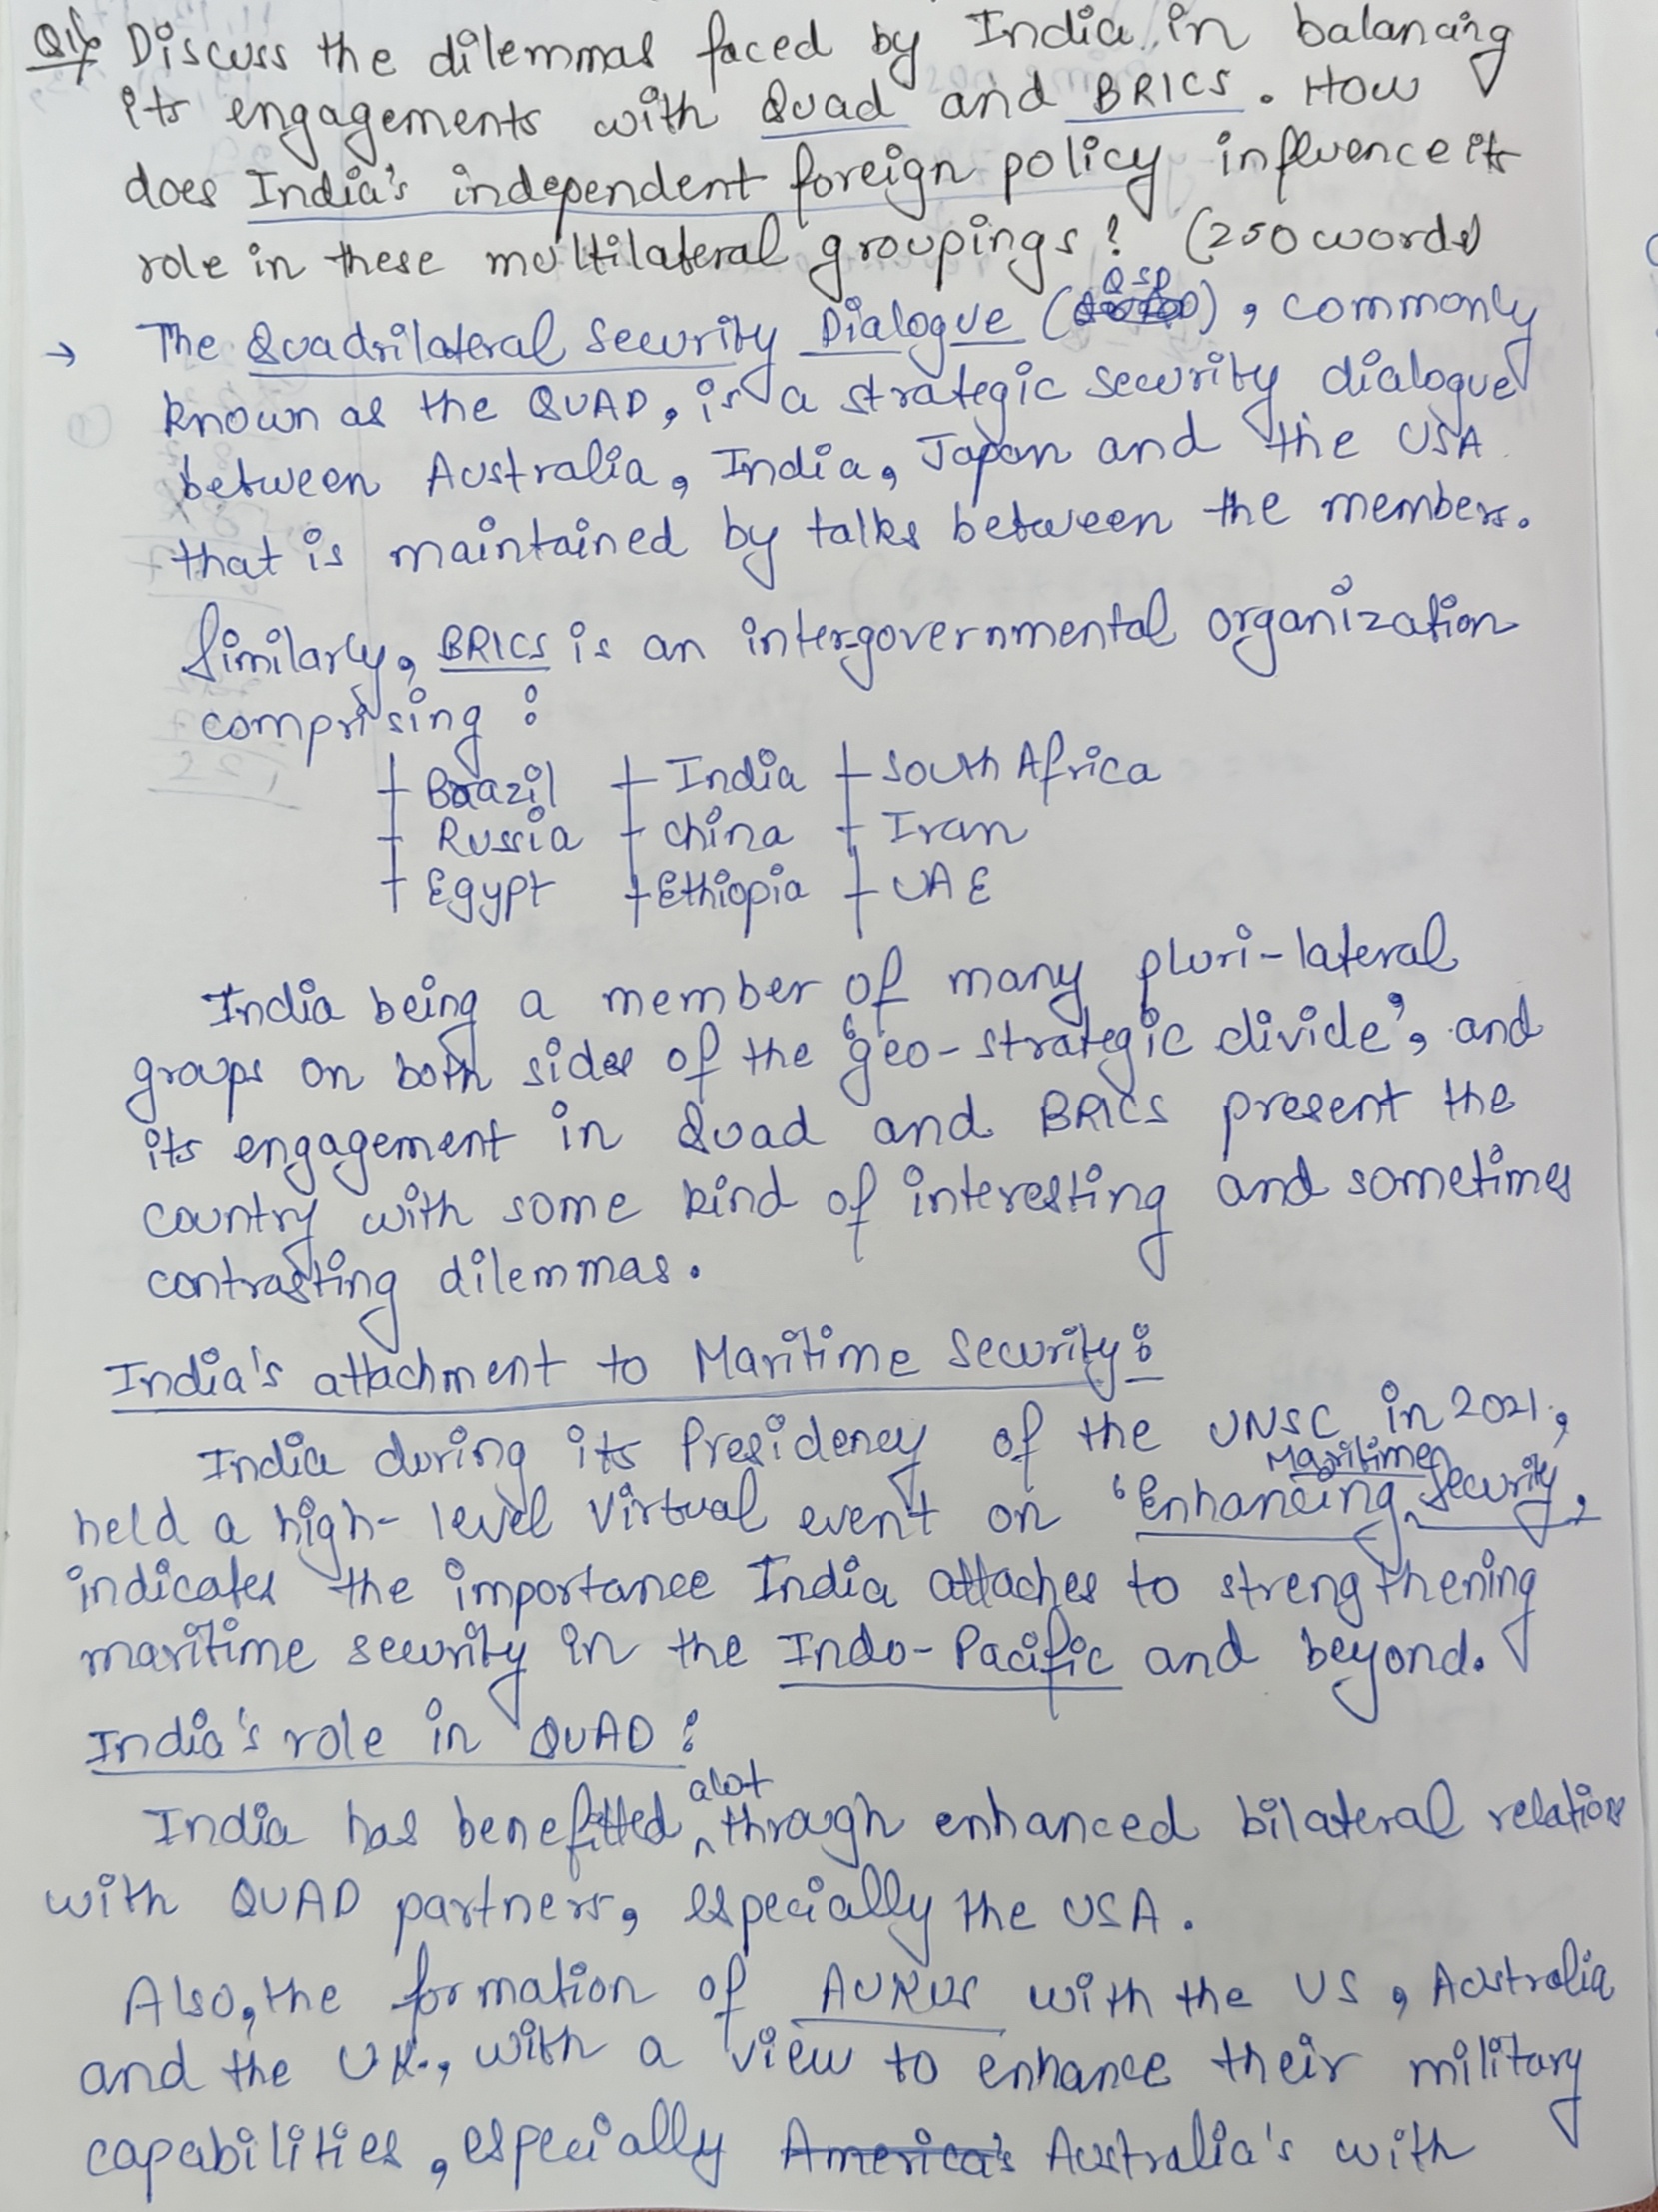 Q1) Discuss the dilemmas faced by India in balancing
its engagements with Quad and BRICS. How
does India's independent foreign policy influence its
role in these multilateral groupings? (250 words)
→ The Quadrilateral Security Dialogue (QSD), commonly
known as the QUAD, is a strategic security dialogue
between Australia, India, Japan and the USA
that is maintained by talks between the members.
Similarly, BRICS is an inter-governmental organization
comprising :
Brazil India South Africa
Russia China Iran
Egypt Ethiopia UAE
India being a member of many pluri-lateral
groups on both sides of the 'geo-strategic divide', and
its engagement in Quad and BRICS present the
country with some kind of interesting and sometimes
contrasting dilemmas.
India's attachment to Maritime Security:
India during its Presidency of the UNSC in 2021,
held a high-level Virtual event on 'Enhancing Maritime Security,
indicates the importance India attaches to strengthening
maritime security in the Indo-Pacific and beyond.
India's role in QUAD :
India has benefitted alot through enhanced bilateral relations
with QUAD partners, especially the USA.
Also, the formation of AUKUS with the US, Australia
and the U.K., with a view to enhance their military
capabilities, especially America's Australia's with